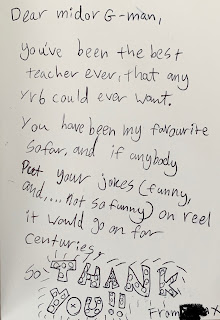 Dear midor G-man,
you've been the best
teacher ever, that any
yr6 could ever want.
You have been my favourite
so far, and if anybody
Put your jokes (funny,
and,... not so funny) on reel
it would go on for
centuries,
So THANK
YOU!!
From